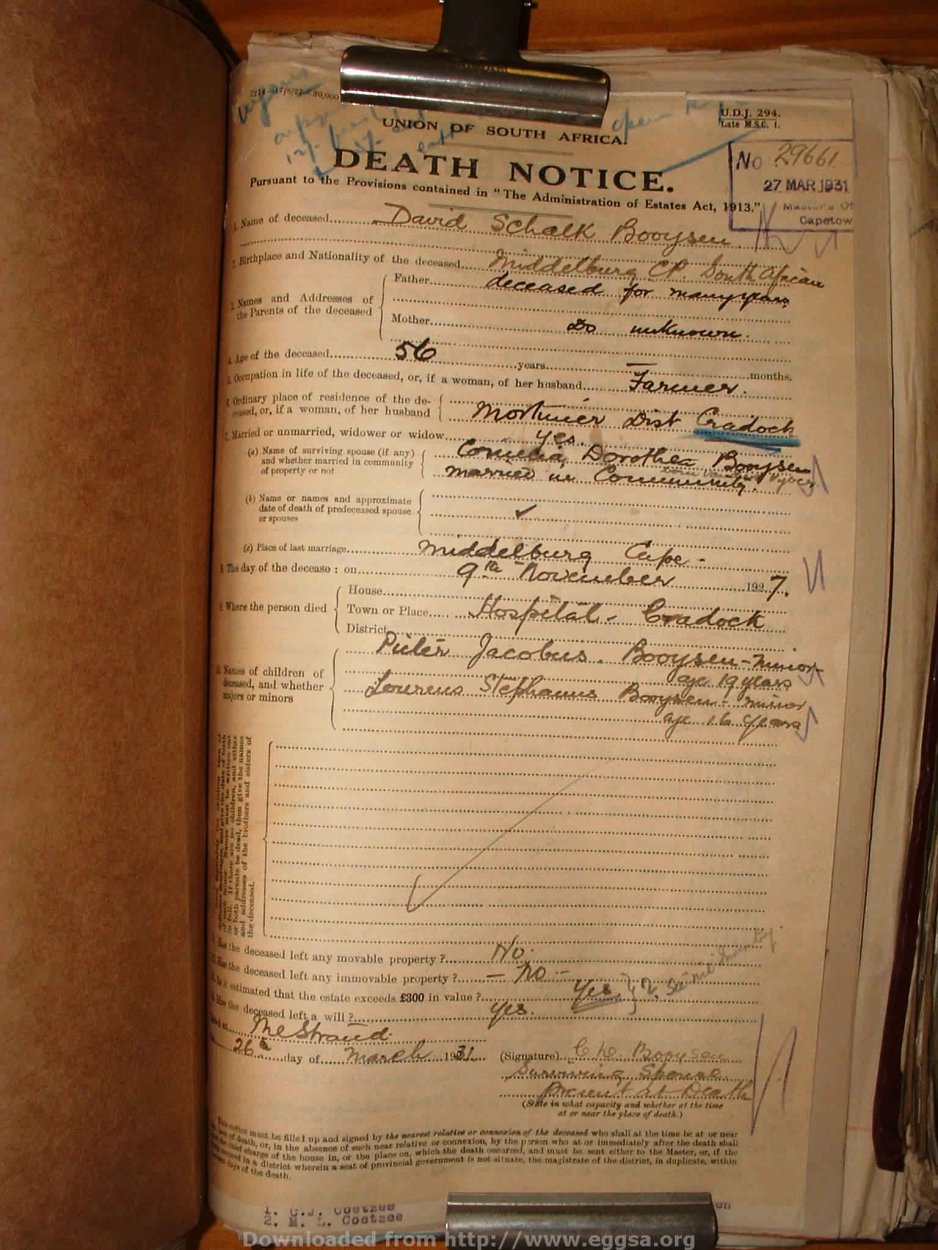 20,000
U.D.J. 294.
Late M.S.C. 1.
UNION OF SOUTH AFRICA.
DEATH NOTICE.
No 29661
27 MAR 1931
Master's Of
Capetow
Pursuant to the Provisions contained in "The Administration of Estates Act, 1913."
1. Name of deceased David Schalk Booysen
Birthplace and Nationality of the deceased Middelburg C.P. South African
3. Names and Addresses of the Parents of the deceased
Father deceased for many years
Mother Do unknown.
4. Age of the deceased 56 years — months.
5. Occupation in life of the deceased, or, if a woman, of her husband Farmer.
Ordinary place of residence of the deceased, or, if a woman, of her husband Mortimer Dist Cradock
7. Married or unmarried, widower or widow yes.
(a) Name of surviving spouse (if any) and whether married in community of property or not
Dorothea Booysen
married in Community.
(b) Name or names and approximate date of death of predeceased spouse or spouses
(c) Place of last marriage Middelburg Cape -
The day of the decease: on 9th November 1927.
Where the person died
House
Town or Place Hospital - Cradock
District
10. Names of children of deceased, and whether majors or minors
Pieter Jacobus Booysen - minor
age 19 years
Lourens Stephanus Booysen - minor
age 16 years
and addresses of the brothers and sisters of
the deceased.
Has the deceased left any movable property ? No.
Has the deceased left any immovable property ? — No —
Is it estimated that the estate exceeds £300 in value ? Yes
Has the deceased left a will ? Yes.
The Strand
26th day of March 1931. (Signature) Booysen
Surviving Spouse
Present at Death
(State in what capacity and whether at the time
at or near the place of death.)
This notice must be filled up and signed by the nearest relative or connexion of the deceased who shall at the time be at or near
of death, or, in the absence of such near relative or connexion, by the person who at or immediately after the death shall
charge of the house in, or the place on, which the death occurred, and must be sent either to the Master, or, if the
in a district wherein a seat of provincial government is not situate, the magistrate of the district, in duplicate, within
days of the death.
1. C.J. Coetzee
2. M. L. Coetzee
Downloaded from http://www.eggsa.org